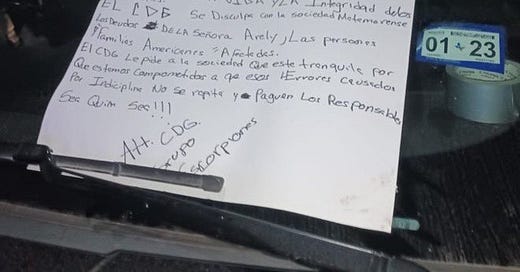 VIDA Y LA Integridad de los
EL CDG Se Disculpa con la sociedad Matamorense
Los Deudos DE LA Señora Arely, Y Las personas
Y familias Americanas Afectadas.
El CDG Le pide a la sociedad Que este tranquila por
Que estamos comprometidos a que esos Errores causados
Por Indiciplina No se repita y Paguen Los Responsables
Sea Quien Sea!!!
Att. CDG.
Grupo
Escorpiones
01 23